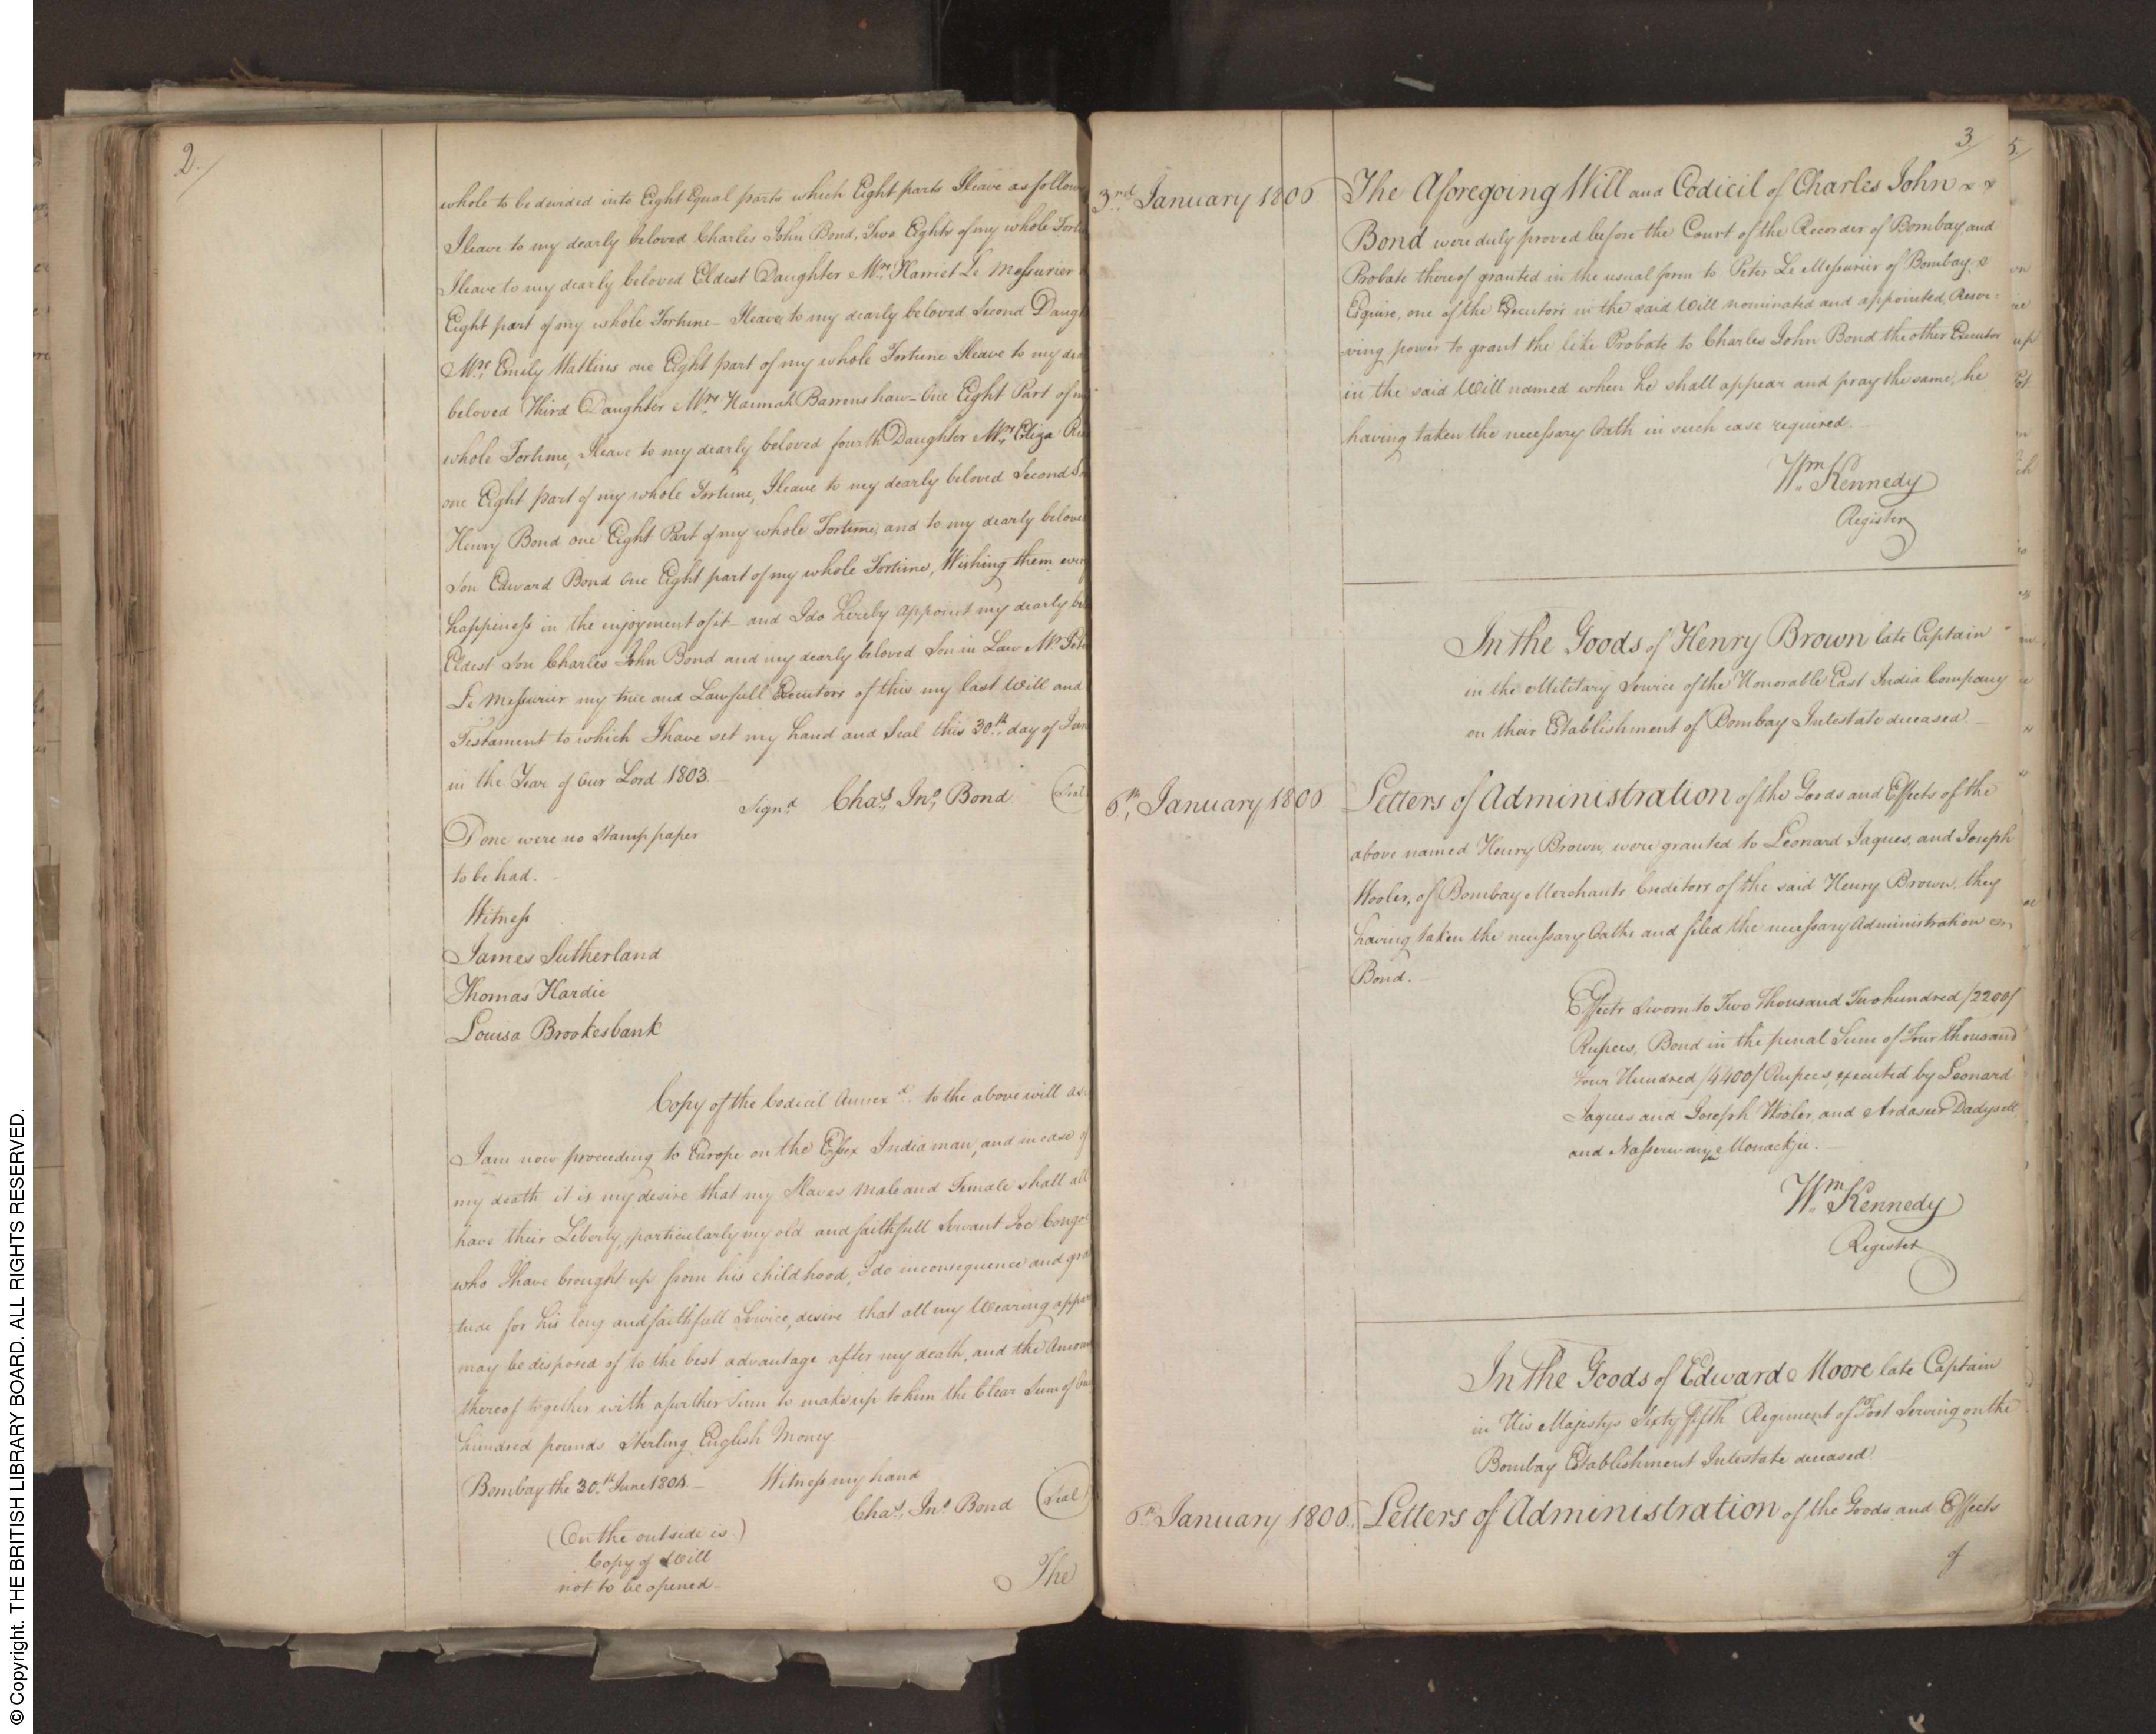 2.
whole to be devided into Eight Equal parts which Eight parts I leave as follow
I leave to my dearly beloved Charles John Bond, Two Eights of my whole
I leave to my dearly beloved Eldest Daughter Mrs. Harriet Le Messurier
Eight part of my whole Fortune – I leave to my dearly beloved Second Daugh
Mrs. Emily Watkins one Eight part of my whole Fortune I leave to my
beloved Third Daughter Mrs. Hannah Barrenshaw – One Eight Part of
whole Fortune, I leave to my dearly beloved fourth Daughter Mrs. Eliza
one Eight part of my whole Fortune, I leave to my dearly beloved Second
Henry Bond one Eight Part of my whole Fortune, and to my dearly belove
Son Edward Bond One Eight part of my whole Fortune, Wishing them
happiness in the enjoyment of it – and I do hereby appoint my dearly
Eldest Son Charles John Bond and my dearly beloved Son in Law Mr. Pete
Le Messurier my true and Lawfull Executors of this my last Will and
Testament to which I have set my hand and Seal this 30th. day of Jan
in the Year of Our Lord 1803. –
Signd. Chas. Jno. Bond Seal
Done were no Stamp paper
to be had. –
Witness
James Sutherland
Thomas Hardie
Louisa Brookesbank
Copy of the Codicil Annexd. to the above will
I am now proceeding to Europe on the Essex Indiaman, and in case of
my death it is my desire that my Slaves male and Female shall all
have their Liberty, particularly my old and faithfull Servant Joe Congo
who I have brought up from his childhood, I do in consequence and gra
tude for his long and faithfull Service, desire that all my Wearing appa
may be disposed of to the best advantage after my death, and the Amoun
thereof together with a further Sum to make up to him the Clear Sum of One
hundred pounds Sterling English Money.
Bombay the 30th. June 1804. – Witness my hand
Chas. Jno. Bond Seal
(On the outside is)
Copy of Will
not to be opened –
The
3
5
3rd. January 1806
The Aforegoing Will and Codicil of Charles John x x
Bond were duly proved before the Court of the Recorder of Bombay, and
Probate thereof granted in the usual form to Peter Le Messurier of Bombay
Esquire, one of the Executors in the said Will nominated and appointed, Reser-
ving power to grant the like Probate to Charles John Bond the other Executor
in the said Will named when he shall appear and pray the same, he
having taken the necessary Oath in such case required. –
Wm. Kennedy
Register
In the Goods of Henry Brown late Captain
in the Military Service of the Honorable East India Company
on their Establishment of Bombay Intestate deceased. –
6th. January 1806
Letters of Administration of the Goods and Effects of the
above named Henry Brown, were granted to Leonard Jaques, and Joseph
Wooler, of Bombay Merchants Creditors of the said Henry Brown, they
having taken the necessary Oaths and filed the necessary Administration
Bond. –
Effects Sworn to Two Thousand Two hundred /2200/
Rupees, Bond in the penal Sum of Four thousand
Four Hundred /4400/ Rupees, executed by Leonard
Jaques and Joseph Wooler, and Ardaseer Dadysett
and Nasserwanje Monackjie. –
Wm. Kennedy
Register
In the Goods of Edward Moore late Captain
in His Majestys Sixty fifth Regiment of Foot Serving on the
Bombay Establishment Intestate deceased
6th. January 1806.
Letters of Administration of the Goods and Effects
of
© Copyright. THE BRITISH LIBRARY BOARD. ALL RIGHTS RESERVED.